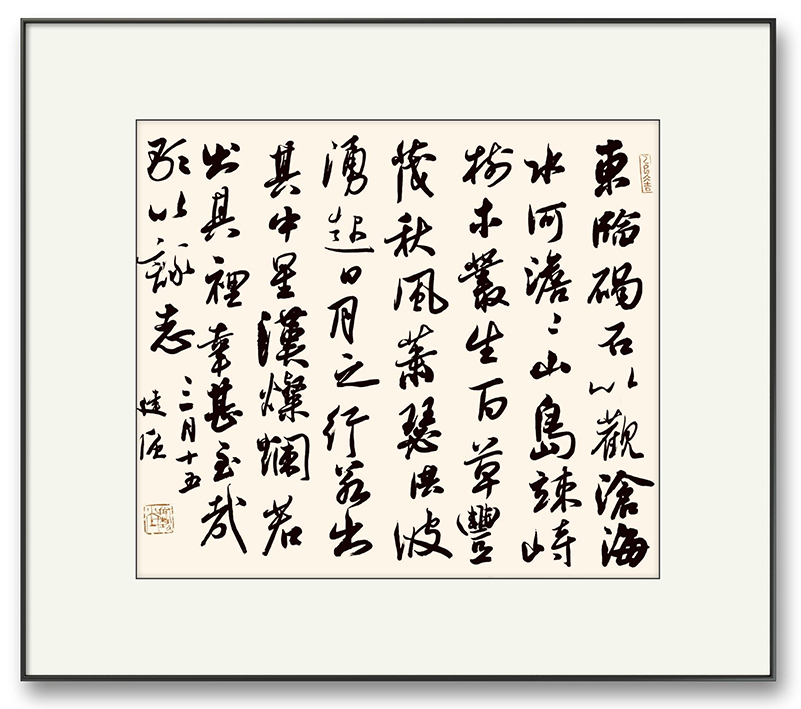 東臨碣石以觀滄海
水河澹〻山島竦峙
樹木叢生百草豐
茂秋風蕭瑟洪波
湧起日月之行若出
其中星漢燦爛若
出其裡幸甚至哉
歌以詠志
三月十五
建